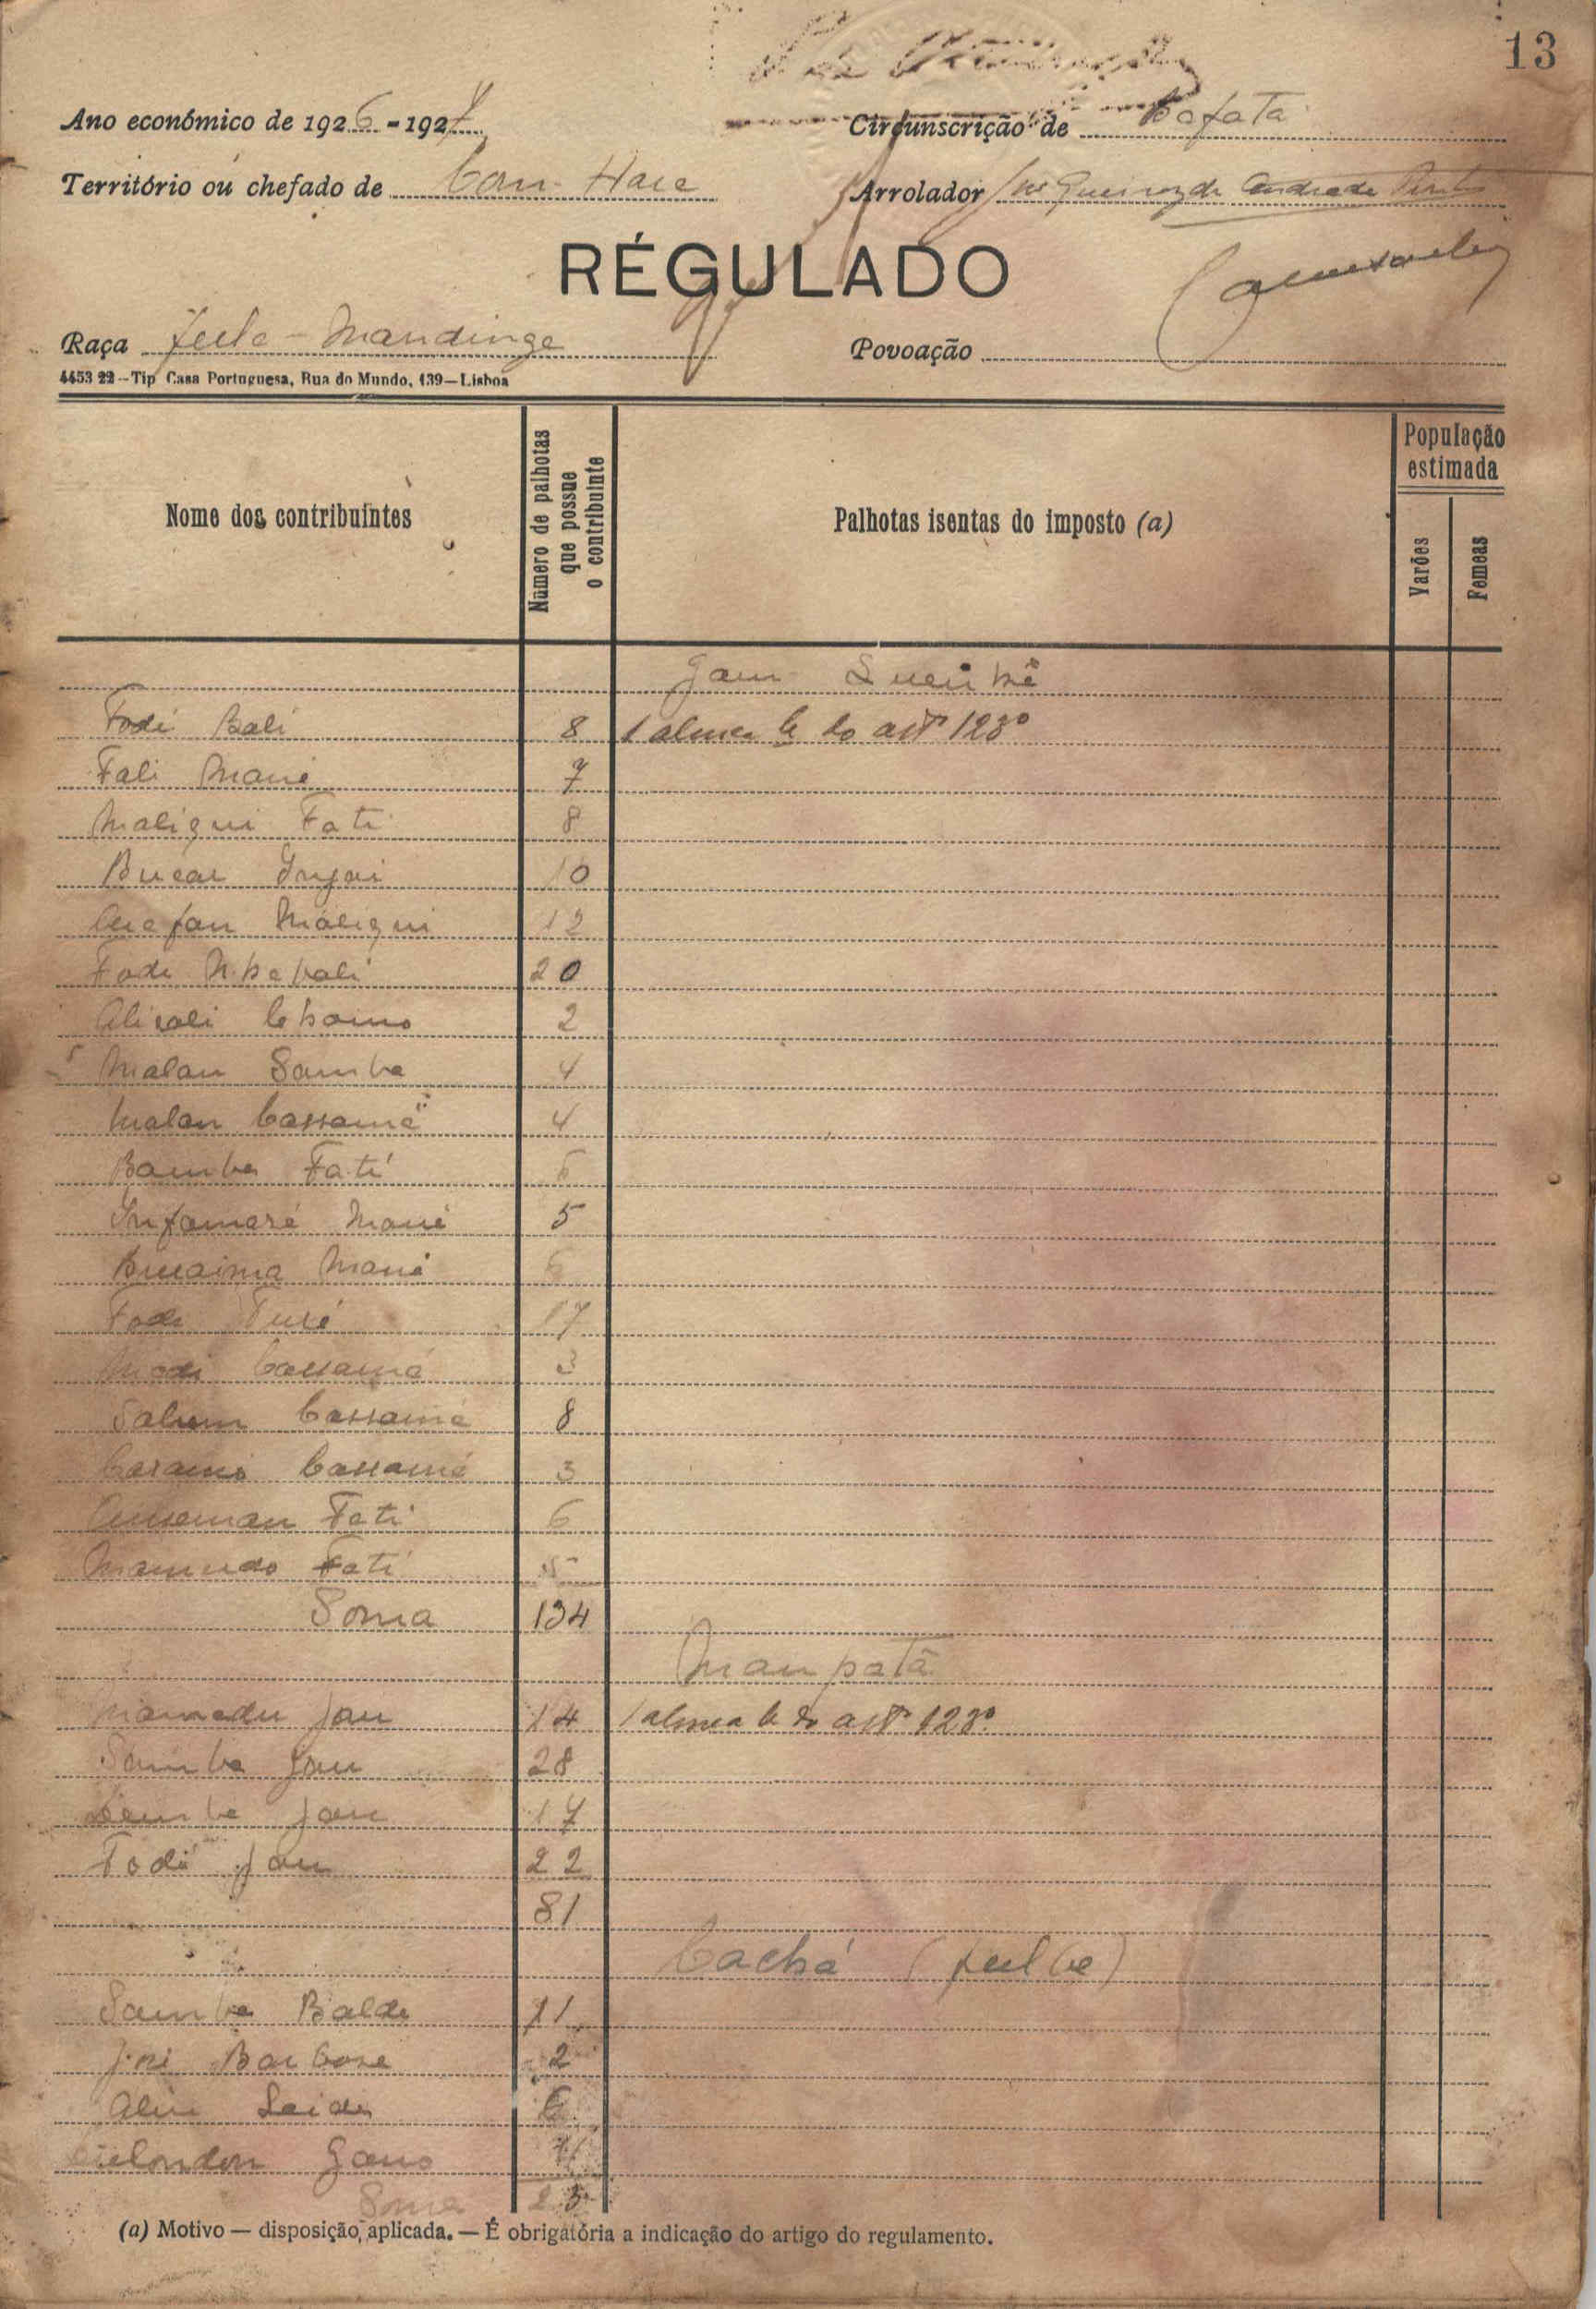 13
Ano económico de 1926-1927
Circunscrição de Bafata
Território ou chefado de
Arrolador Queiroz de Andrade
RÉGULADO
Raça Fula - Mandinga
Povoação
4453 22 — Tip Casa Portuguesa, Rua do Mundo, 139 — Lisboa
Nome dos contribuintes
Número de palhotas que possue o contribuinte
Palhotas isentas do imposto (a)
População estimada
Varões
Femeas
Fodi Bali 8 1 alinea b do artº 123º
Fali Mané 7
Maliqui Fati 8
Bucar 10
Maliqui 12
Fode 20
2
Malan Samba 4
Malan Cassamá 4
Bamba Fati 6
Infamará Mané 5
Buraima Mané 6
Fode Turé 17
Modi Cassamá 3
Salum Cassamá 8
Cassamá 3
Fati 6
Mamudo Fati 5
Soma 134
Mampatá
Mamadu Jau 14 1 alinea b do artº 123º
Samba Jau 28
Demba Jau 17
Fodé Jau 22
81
Cachá (fulbe)
Samba Balde 11
José Barbosa 2
Aliu Seide 6
Gano
Soma 23
(a) Motivo — disposição aplicada. — É obrigatória a indicação do artigo do regulamento.